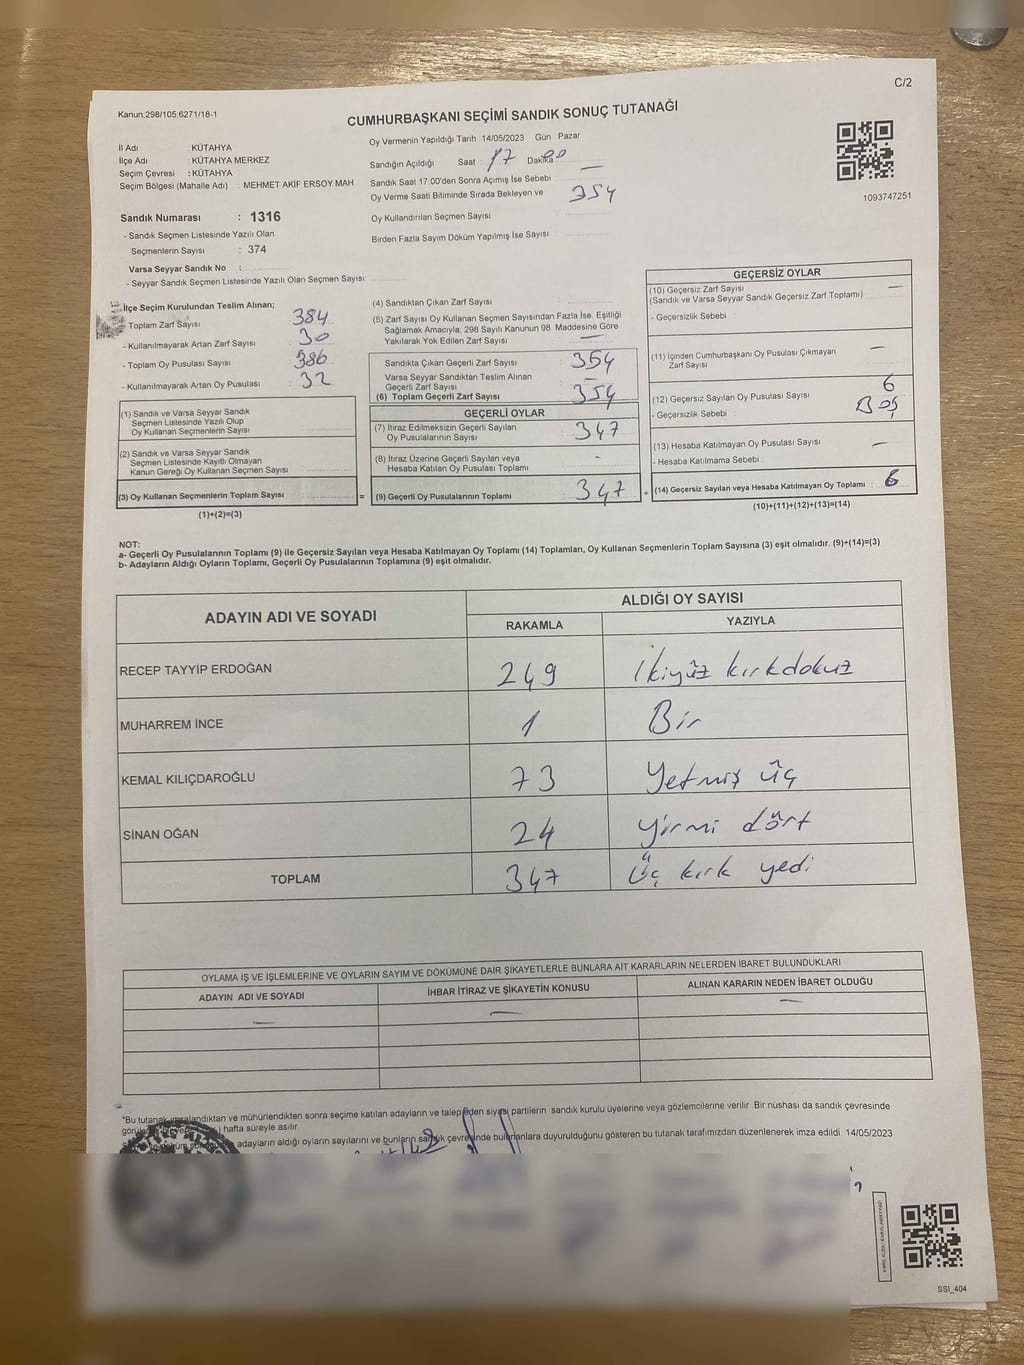 C/2
Kanun;298/105;6271/18-1
CUMHURBAŞKANI SEÇİMİ SANDIK SONUÇ TUTANAĞI
İl Adı : KÜTAHYA
İlçe Adı : KÜTAHYA MERKEZ
Seçim Çevresi : KÜTAHYA
Seçim Bölgesi (Mahalle Adı) : MEHMET AKİF ERSOY MAH
Oy Vermenin Yapıldığı Tarih : 14/05/2023 Gün : Pazar
Sandığın Açıldığı Saat : 17 Dakika : 00
Sandık Saat 17:00'den Sonra Açımış İse Sebebi : —
Oy Verme Saati Bitiminde Sırada Bekleyen ve 354
Oy Kullandırılan Seçmen Sayısı
Birden Fazla Sayım Döküm Yapılmış İse Sayısı
1093747251
Sandık Numarası : 1316
- Sandık Seçmen Listesinde Yazılı Olan
Seçmenlerin Sayısı : 374
Varsa Seyyar Sandık No :
- Seyyar Sandık Seçmen Listesinde Yazılı Olan Seçmen Sayısı:
İlçe Seçim Kurulundan Teslim Alınan;
Toplam Zarf Sayısı 384
- Kullanılmayarak Artan Zarf Sayısı 30
- Toplam Oy Pusulası Sayısı 386
- Kullanılmayarak Artan Oy Pusulası 32
(1) Sandık ve Varsa Seyyar Sandık
Seçmen Listesinde Yazılı Olup
Oy Kullanan Seçmenlerin Sayısı
(2) Sandık ve Varsa Seyyar Sandık
Seçmen Listesinde Kayıtlı Olmayan
Kanun Gereği Oy Kullanan Seçmen Sayısı
(3) Oy Kullanan Seçmenlerin Toplam Sayısı =
(1)+(2)=(3)
(4) Sandıktan Çıkan Zarf Sayısı
(5) Zarf Sayısı Oy Kullanan Seçmen Sayısından Fazla İse, Eşitliği
Sağlamak Amacıyla; 298 Sayılı Kanunun 98. Maddesine Göre
Yakılarak Yok Edilen Zarf Sayısı —
Sandıkta Çıkan Geçerli Zarf Sayısı 354
Varsa Seyyar Sandıktan Teslim Alınan
Geçerli Zarf Sayısı —
(6) Toplam Geçerli Zarf Sayısı 354
GEÇERLİ OYLAR
(7) İtiraz Edilmeksizin Geçerli Sayılan
Oy Pusulalarının Sayısı 347
(8) İtiraz Üzerine Geçerli Sayılan veya
Hesaba Katılan Oy Pusulası Toplamı -
(9) Geçerli Oy Pusulalarının Toplamı 347 +
GEÇERSİZ OYLAR
(10) Geçersiz Zarf Sayısı —
(Sandık ve Varsa Seyyar Sandık Geçersiz Zarf Toplamı)
- Geçersizlik Sebebi :
(11) İçinden Cumhurbaşkanı Oy Pusulası Çıkmayan —
Zarf Sayısı
(12) Geçersiz Sayılan Oy Pusulası Sayısı 6
- Geçersizlik Sebebi : Boş
(13) Hesaba Katılmayan Oy Pusulası Sayısı —
- Hesaba Katılmama Sebebi :
(14) Geçersiz Sayılan veya Hesaba Katılmayan Oy Toplamı : 6
(10)+(11)+(12)+(13)=(14)
NOT:
a- Geçerli Oy Pusulalarının Toplamı (9) ile Geçersiz Sayılan veya Hesaba Katılmayan Oy Toplamı (14) Toplamları, Oy Kullanan Seçmenlerin Toplam Sayısına (3) eşit olmalıdır. (9)+(14)=(3)
b- Adayların Aldığı Oyların Toplamı, Geçerli Oy Pusulalarının Toplamına (9) eşit olmalıdır.
ADAYIN ADI VE SOYADI ALDIĞI OY SAYISI
RAKAMLA YAZIYLA
RECEP TAYYİP ERDOĞAN 249 İkiyüz kırkdokuz
MUHARREM İNCE 1 Bir
KEMAL KILIÇDAROĞLU 73 Yetmiş üç
SİNAN OĞAN 24 Yirmi dört
TOPLAM 347 Üç kırk yedi
OYLAMA İŞ VE İŞLEMLERİNE VE OYLARIN SAYIM VE DÖKÜMÜNE DAİR ŞİKAYETLERLE BUNLARA AİT KARARLARIN NELERDEN İBARET BULUNDUKLARI
ADAYIN ADI VE SOYADI İHBAR İTİRAZ VE ŞİKAYETİN KONUSU ALINAN KARARIN NEDEN İBARET OLDUĞU
— — —
*Bu tutanak imzalandıktan ve mühürlendikten sonra seçime katılan adayların ve talep eden siyasi partilerin sandık kurulu üyelerine veya gözlemcilerine verilir. Bir nüshası da sandık çevresinde
hafta süreyle asılır.
adayların aldığı oyların sayılarını ve bunların sandık çevresinde bulunanlara duyurulduğunu gösteren bu tutanak tarafımızdan düzenlenerek imza edildi. 14/05/2023
KARE KODU KARALAMAYINIZ!
SSI_404